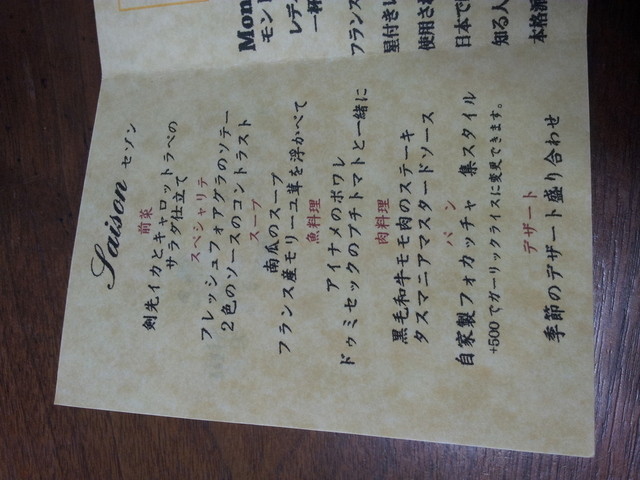 Saison セゾン
前菜
剣先イカとキャロットラペの
サラダ仕立て
スペシャリテ
フレッシュフォアグラのソテー
2色のソースのコントラスト
スープ
南瓜のスープ
フランス産モリーユ茸を浮かべて
魚料理
アイナメのポワレ
ドゥミセックのプチトマトと一緒に
肉料理
黒毛和牛モモ肉のステーキ
タスマニアマスタードソース
パン
自家製フォカッチャ 集スタイル
+500でガーリックライスに変更できます。
デザート
季節のデザート盛り合わせ
Mon
モン
レデ
一杯
フランス
星付きレ
使用され
日本で
知る人
本格派